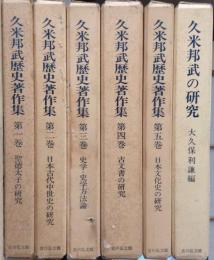 久米邦武の研究
大久保利謙編
吉川弘文館
久米邦武歴史著作集
第五巻
日本文化史の研究
吉川弘文館
久米邦武歴史著作集
第四巻
古文書の研究
吉川弘文館
久米邦武歴史著作集
第三巻
史学・史学方法論
吉川弘文館
久米邦武歴史著作集
第二巻
日本古代中世史の研究
吉川弘文館
久米邦武歴史著作集
第一巻
聖徳太子の研究
吉川弘文館